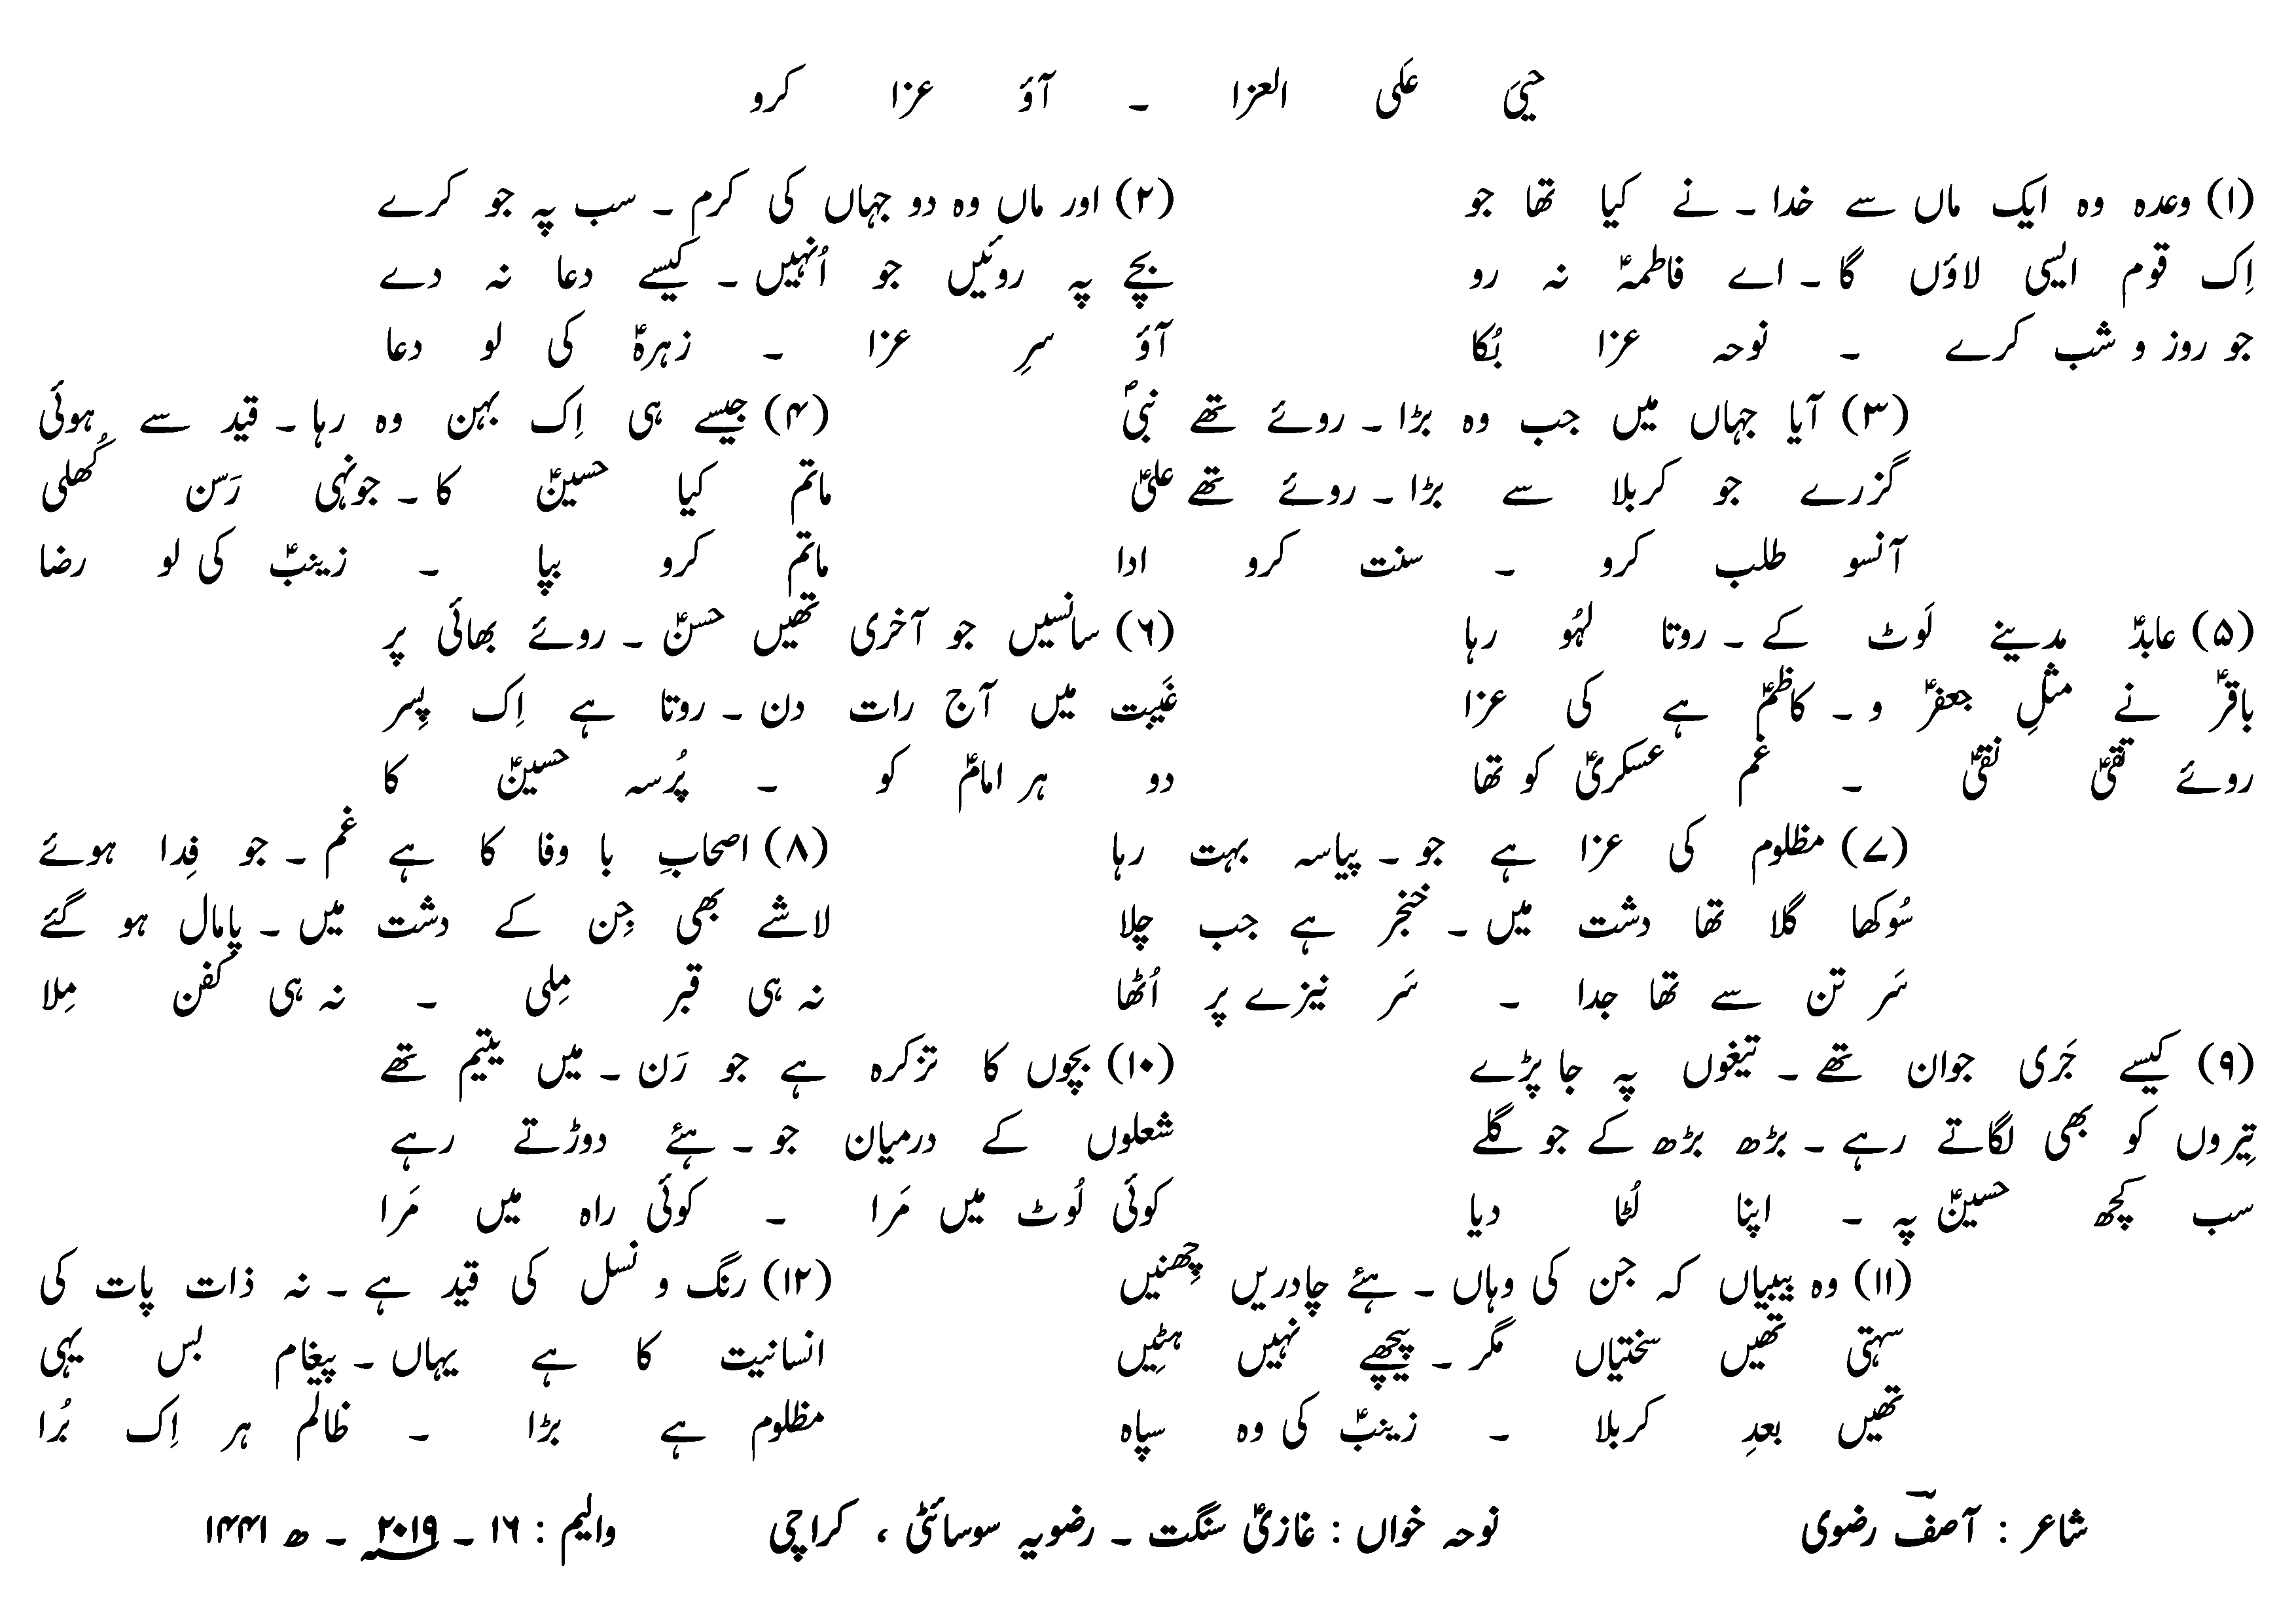 حیَّ عَلی العزا ۔ آؤ عزا کرو
(۱) وعدہ وہ ایک ماں سے خدا ۔ نے کیا تھا جو
اِک قوم ایسی لاؤں گا ۔ اے فاطمہؑ نہ رو
جو روز و شب کرے ۔ نوحہ عزا بُکا
(۲) اور ماں وہ دو جہاں کی کرم ۔ سب پہ جو کرے
بچے پہ روئیں جو اُنہیں ۔ کیسے دعا نہ دے
آؤ سرِ عزا ۔ زہرہؑ کی لو دعا
(۳) آیا جہاں میں جب وہ بڑا ۔ روئے تھے نبیؐ
گزرے جو کربلا سے بڑا ۔ روئے تھے علیؑ
آنسو طلب کرو ۔ سنت کرو ادا
(۴) جیسے ہی اِک بہن وہ رہا ۔ قید سے ہوئی
ماتم کیا حسینؑ کا ۔ جونہی رَسن کُھلی
ماتم کرو بپا ۔ زینبؑ کی لو رضا
(۵) عابدؑ مدینے لَوٹ کے ۔ روتا لہُو رہا
باقرؑ نے مثلِ جعفرؑ و ۔ کاظمؑ ہے کی عزا
روئے تقیؑ نقیؑ ۔ غم عسکریؑ کو تھا
(۶) سانسیں جو آخری تھیں حسنؑ ۔ روئے بھائی پر
غَیبت میں آج رات دن ۔ روتا ہے اِک پِسر
دو ہر امامؑ کو ۔ پُرسہ حسینؑ کا
(۷) مظلوم کی عزا ہے جو ۔ پیاسہ بہت رہا
سُوکھا گلا تھا دشت میں ۔ خنجر ہے جب چلا
سَر تن سے تھا جدا ۔ سَر نیزے پر اُٹھا
(۸) اصحابِ با وفا کا ہے غم ۔ جو فِدا ہوئے
لاشے بھی جِن کے دشت میں ۔ پامال ہو گئے
نہ ہی قبر مِلی ۔ نہ ہی کفن مِلا
(۹) کیسے جَری جوان تھے ۔ تیغوں پہ جا پڑے
تِیروں کو بھی لگاتے رہے ۔ بڑھ بڑھ کے جو گلے
سب کچھ حسینؑ پہ ۔ اپنا لُٹا دیا
(۱۰) بچوں کا تزکرہ ہے جو رَن ۔ میں یتیم تھے
شعلوں کے درمیان جو ۔ ہئے دوڑتے رہے
کوئی لُوٹ میں مَرا ۔ کوئی راہ میں مَرا
(۱۱) وہ بیبیاں کہ جن کی وہاں ۔ ہئے چادریں چِھنیں
سہتی تھیں سختیاں مگر ۔ پیچھے نہیں ہٹِیں
تھیں بعدِ کربلا ۔ زینبؑ کی وہ سپاہ
(۱۲) رنگ و نسل کی قید ہے ۔ نہ ذات پات کی
انسانیت کا ہے یہاں ۔ پیغام بس یہی
مظلوم ہے بڑا ۔ ظالم ہر اِک بُرا
شاعر : آصفؔ رضوی
نوحہ خواں : غازیؑ سنگت ۔ رضویہ سوسائٹی ، کراچی
والیم : ۱۶ ۔ ۲۰۱۹؁ ۔ ھ ۱۴۴۱